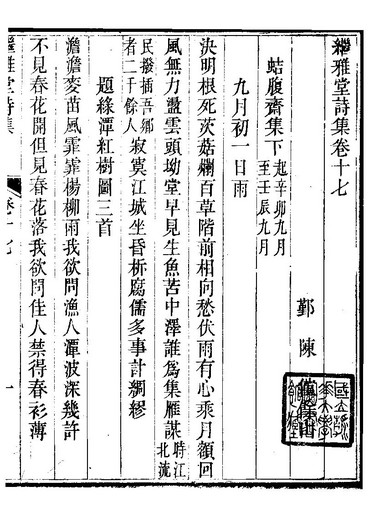 繼雅堂詩集卷十七
鄞 陳
蛣腹齋集下 起辛卯九月至壬辰九月
九月初一日雨
決明根死茨菰爛百草階前相向愁伏雨有心乘月額回
風無力盪雲頭坳堂早見生魚苦中澤誰爲集雁謀時江北流
民撥插吾鄉者二千餘人寂寞江城坐昏柝腐儒多事計綢繆
題綠潭紅樹圖三首
澹澹麥苗風霏霏楊柳雨我欲問漁人潭波深幾許
不見春花開但見春花落我欲問佳人禁得春衫薄
繼雅堂詩集 卷十七 一